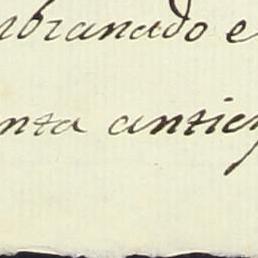 mbranado e
nta antic